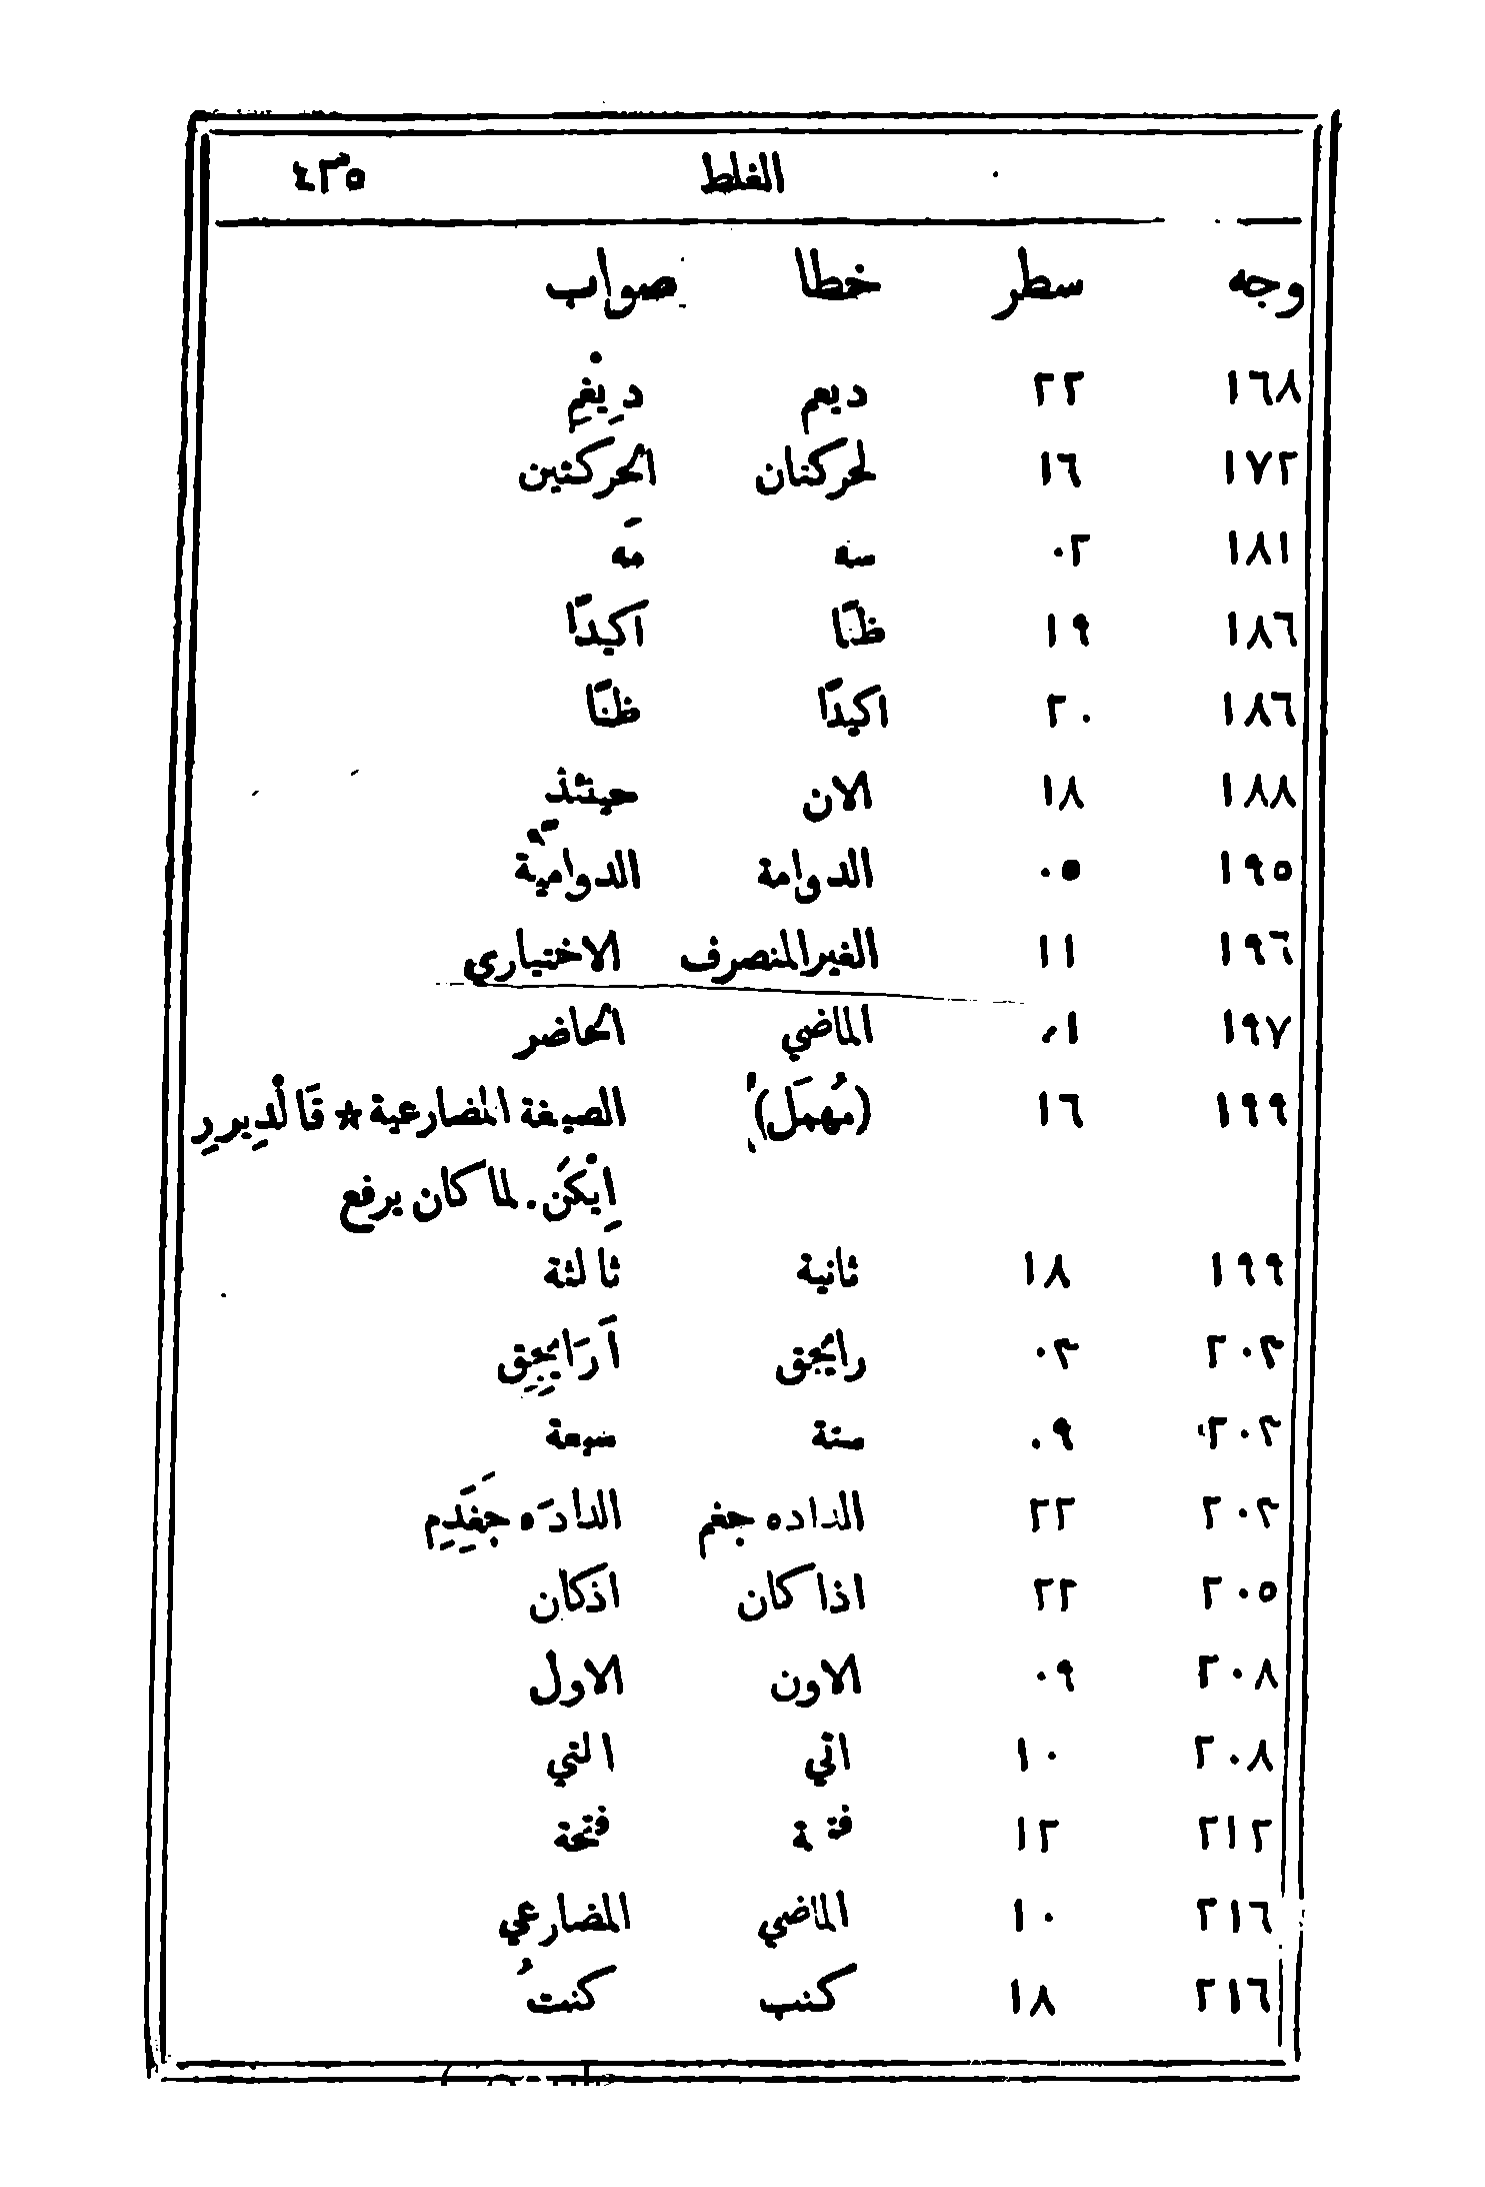 الغلط ٤٣٥
وجه سطر خطا صواب
١٦٨ ٢٢ ديعم دِيغْمِ
١٧٢ ١٦ لحركتان الحركتين
١٨١ ٠٢ سه مَه
١٨٦ ١٩ ظنًا اكيدًا
١٨٦ ٢٠ اكيدًا ظنًا
١٨٨ ١٨ الان حينئذ
١٩٥ ٠٥ الدوامة الدواميّة
١٩٦ ١١ الغير المنصرف الاختياري
١٩٧ ٠١ الماضي الحاضر
١٩٩ ١٦ (مُهمَل) الصيغة المضارعية * قَالْدِيررِ
اِيْكَن. لما كان يرفع
١٩٩ ١٨ ثانية ثالثة
٢٠٢ ٠٢ رايجق اَرَايِجِق
٢٠٢ ٠٩ ستة سبعة
٢٠٢ ٢٢ الداده جغم الدادَه جَغِدِم
٢٠٥ ٢٢ اذا كان اذكان
٢٠٨ ٠٩ الاون الاول
٢٠٨ ١٠ اتي التي
٢١٢ ١٢ فتة فتحة
٢١٦ ١٠ الماضي المضارعي
٢١٦ ١٨ كنب كنتُ